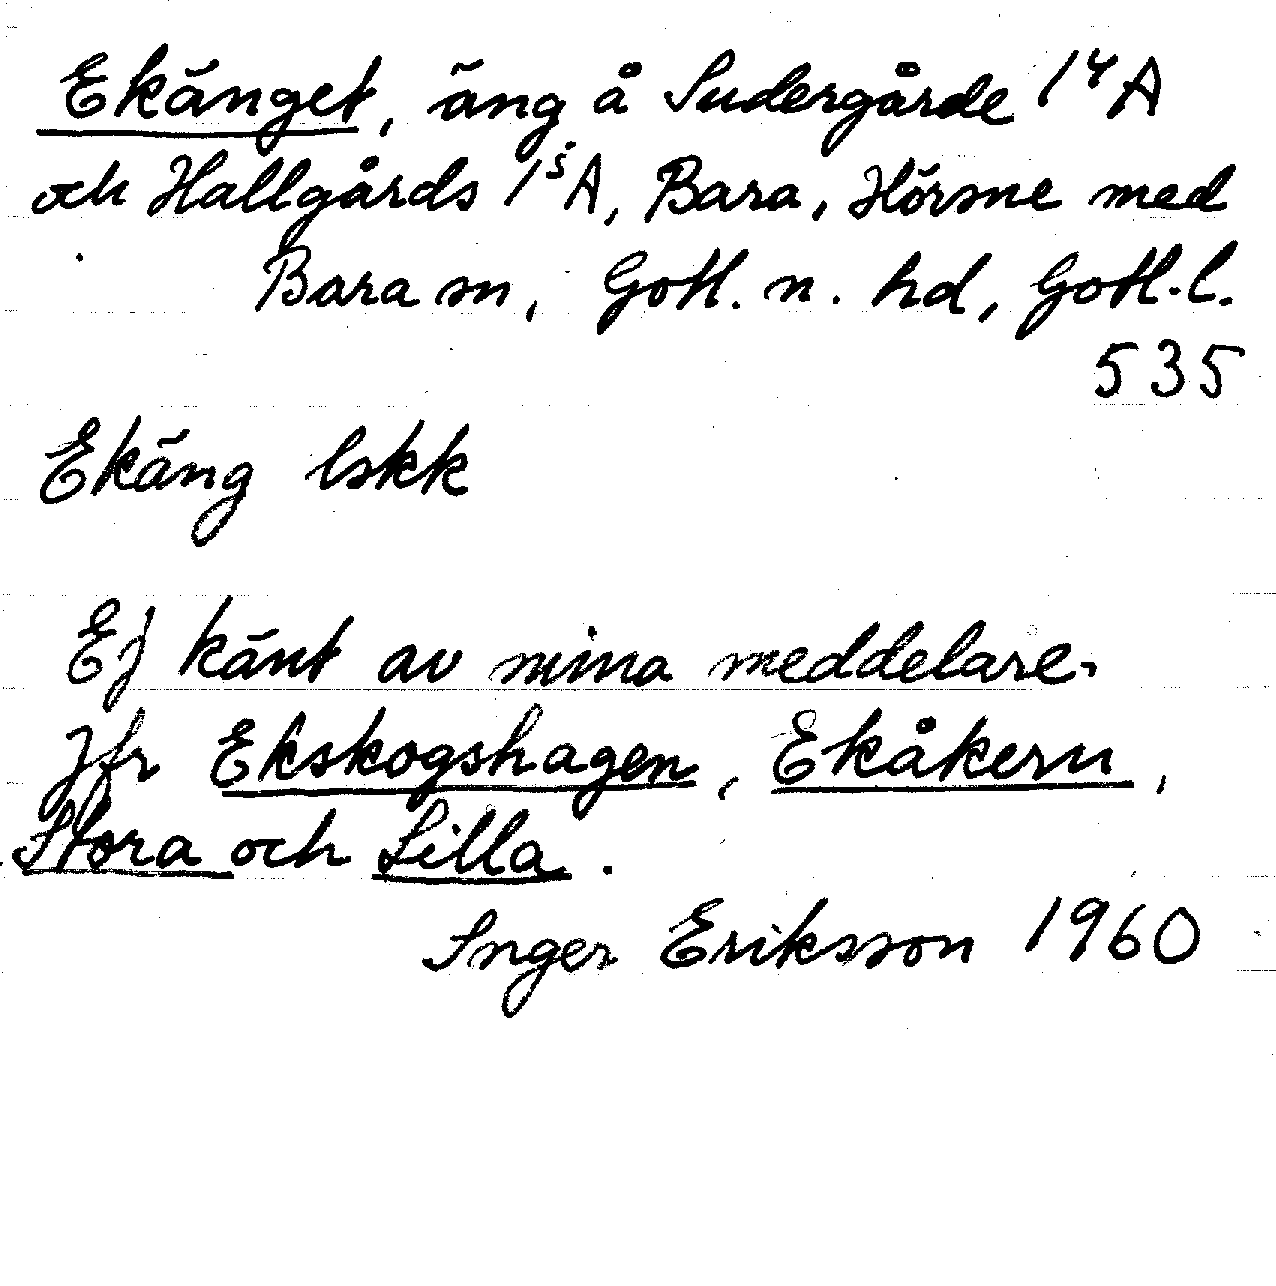 Ekänget, äng å Sudergårde 1⁴A
och Hallgårds 1⁵A, Bara, Hörsne med
Bara sn, Gotl. n. hd, Gotl. l.
535
Ekäng lskk
Ej känt av mina meddelare.
Jfr Ekskogshagen, Ekåkern,
Stora och Lilla.
Inger Eriksson 1960